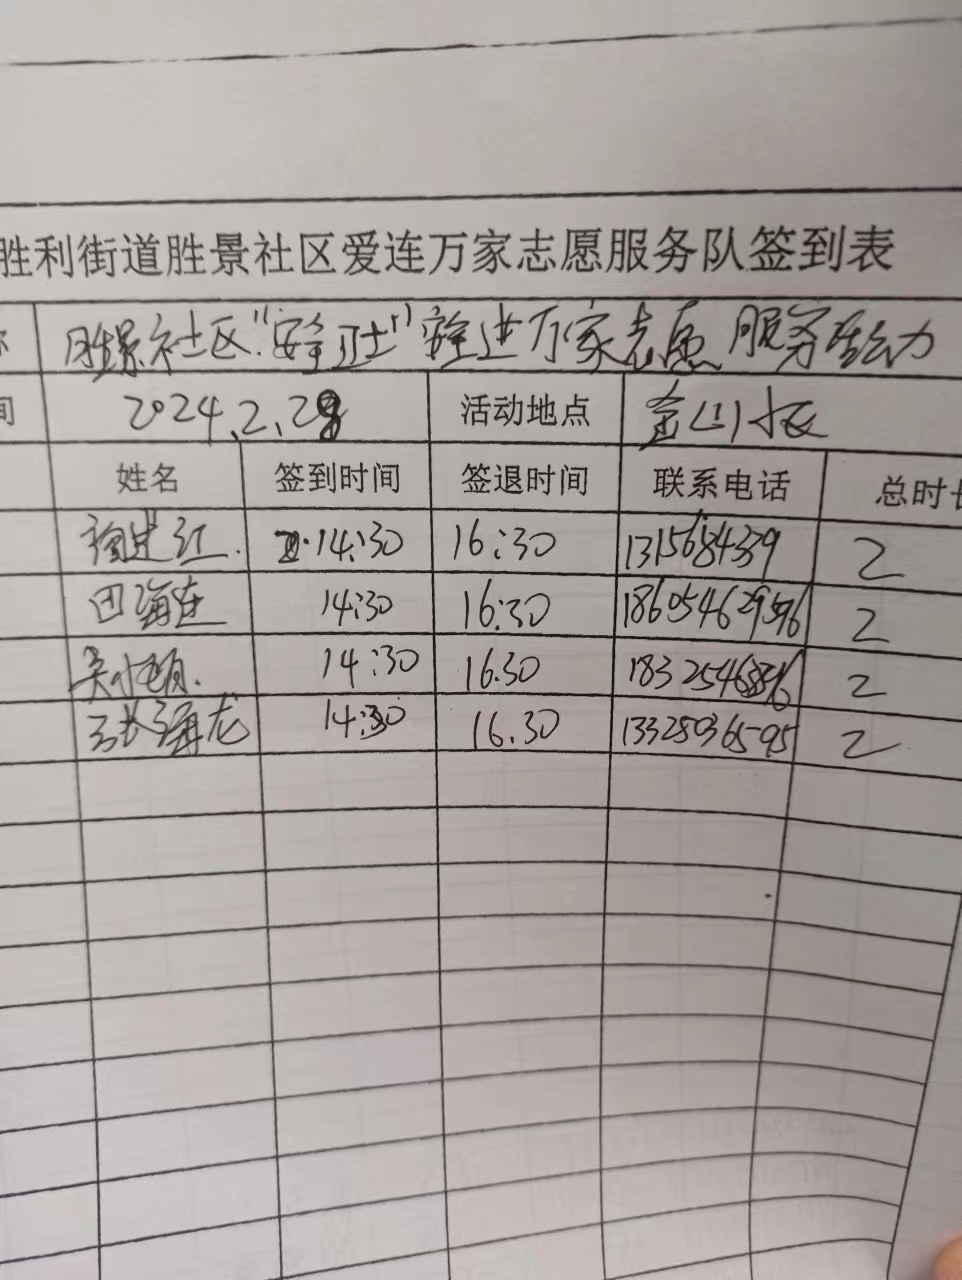 胜利街道胜景社区爱连万家志愿服务队签到表
胜景社区“安全卫士”安全进万家志愿服务活动
间 2024.2.28 活动地点 金凹小区
姓名 签到时间 签退时间 联系电话 总时长
建红 14:30 16:30 2
田海连 14:30 16:30 2
14:30 16.30 2
海龙 14:30 16.30 13328036595 2